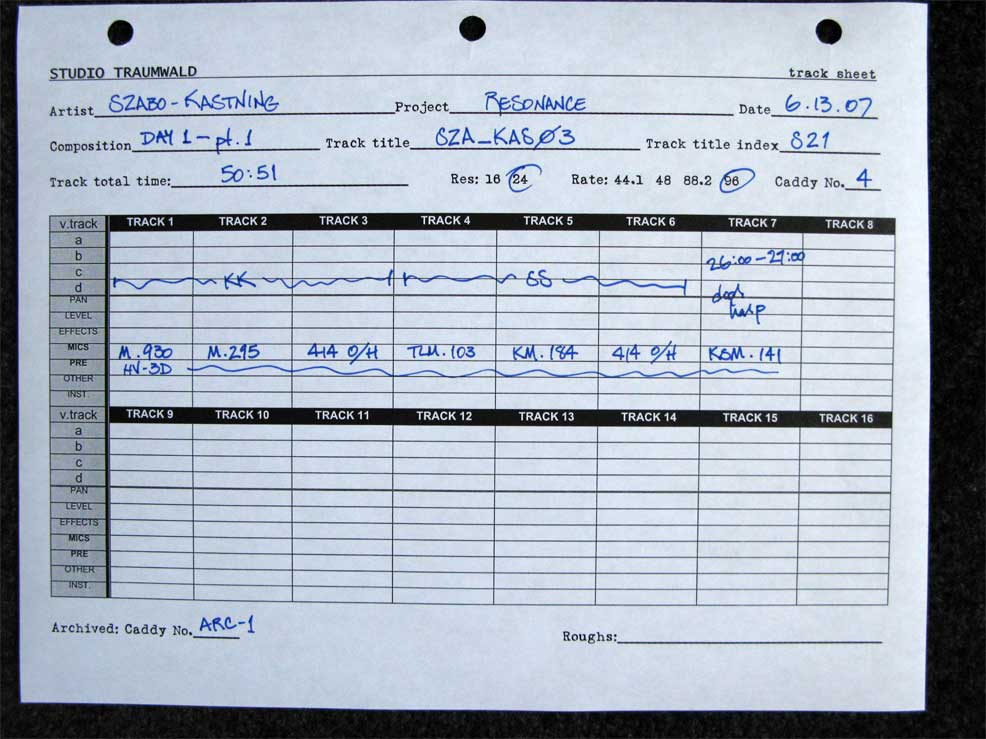 STUDIO TRAUMWALD track sheet
Artist SZABO - KASTNING Project RESONANCE Date 6.13.07
Composition DAY 1 - pt. 1 Track title SZA_KAS03 Track title index S21
Track total time: 50:51 Res: 16 24 Rate: 44.1 48 88.2 96 Caddy No. 4
v.track TRACK 1 TRACK 2 TRACK 3 TRACK 4 TRACK 5 TRACK 6 TRACK 7 TRACK 8
a
b 26:00 - 27:00
c
d KK SS
PAN
LEVEL
EFFECTS
MICS M.930 M.295 414 O/H TLM.103 KM.184 414 O/H KSM.141
PRE HV-3D
OTHER
INST.
v.track TRACK 9 TRACK 10 TRACK 11 TRACK 12 TRACK 13 TRACK 14 TRACK 15 TRACK 16
a
b
c
d
PAN
LEVEL
EFFECTS
MICS
PRE
OTHER
INST.
Archived: Caddy No. ARC-1 Roughs: